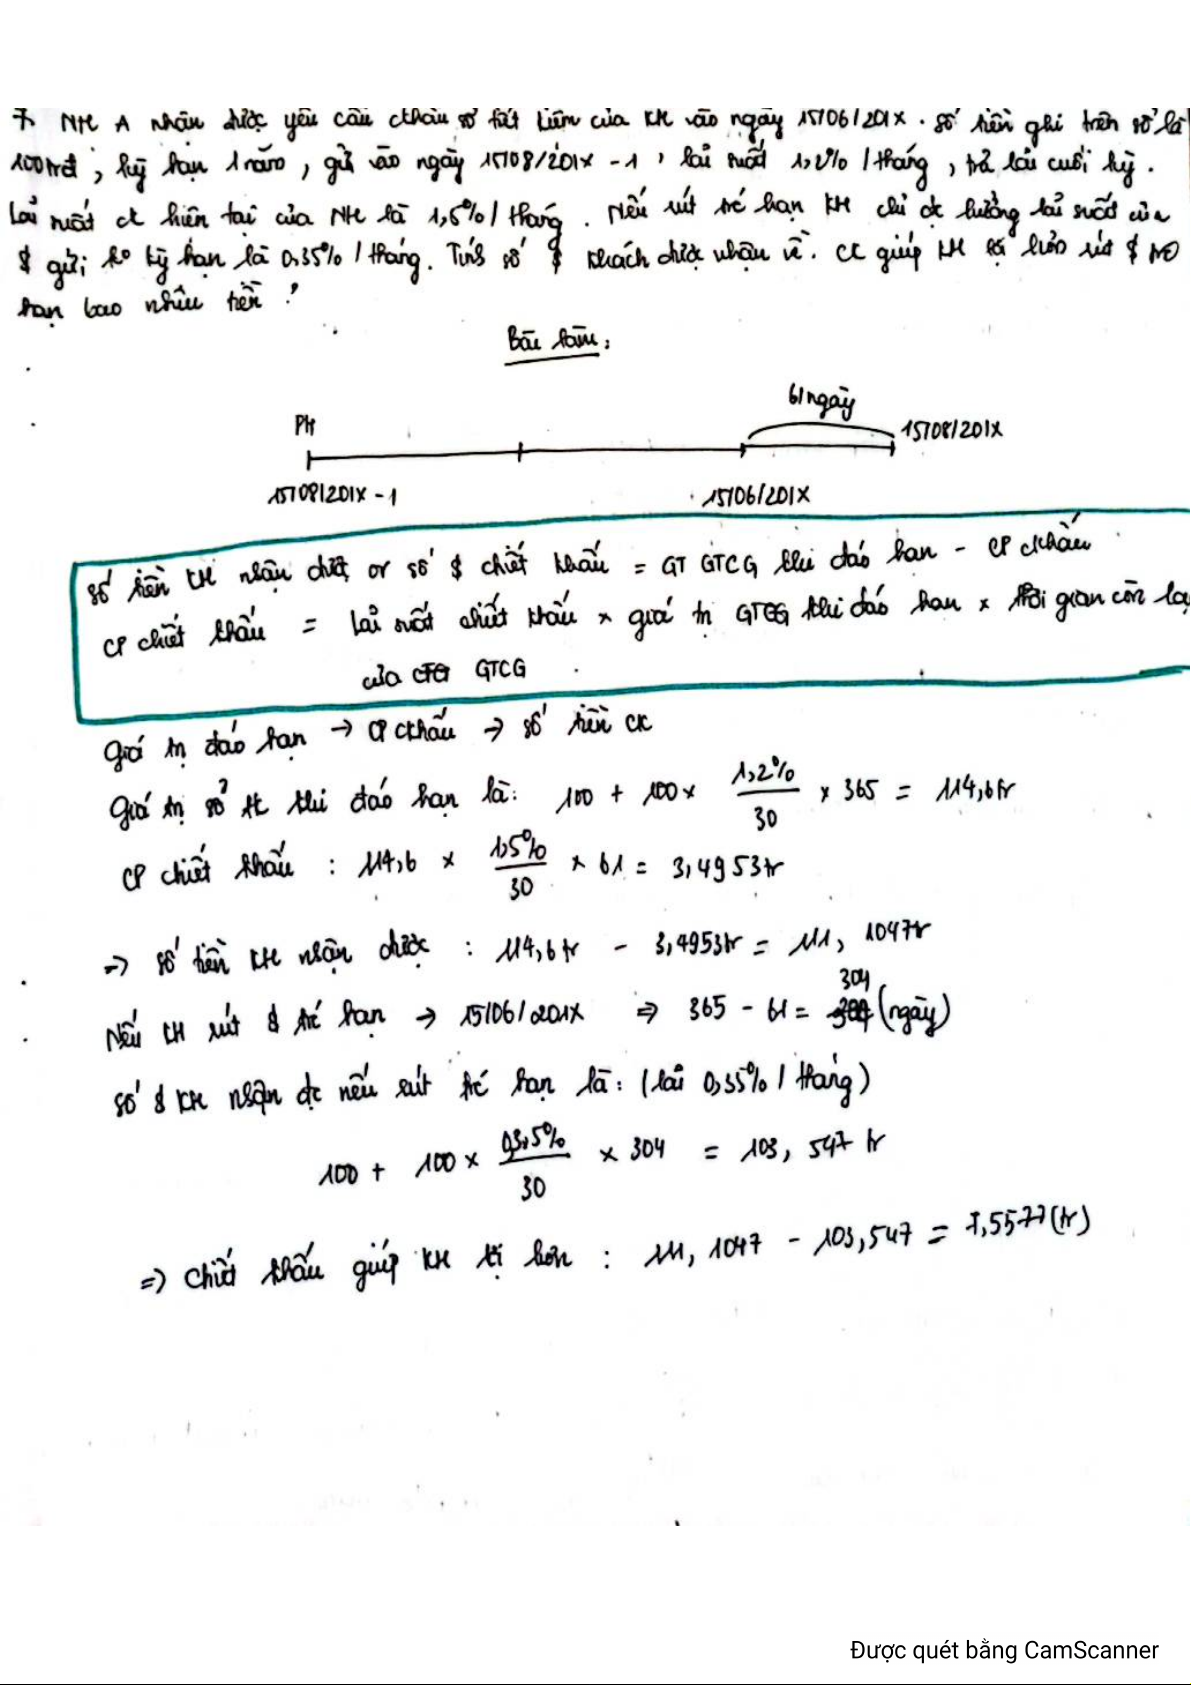 7. NH A nhận được yêu cầu ckhấu sổ tiết kiệm của KH vào ngày 15/06/201X. Số tiền ghi trên sổ là
100trđ, kỳ hạn 1 năm, gửi vào ngày 15/08/201X - 1, lãi suất 1,2% / tháng, trả lãi cuối kỳ.
Lãi suất ck hiện tại của NH là 1,5% / tháng. Nếu rút trc hạn KH chỉ đc hưởng lãi suất của
$ gửi ko kỳ hạn là 0,35% / tháng. Tính số $ khách được nhận về. CK giúp KH lợi hơn rút $ trc
hạn bao nhiêu tiền?
Bài làm:
61 ngày
PH
15/08/201X
15/08/201X - 1
15/06/201X
Số tiền KH nhận được or số $ chiết khấu = GT GTCG khi đáo hạn - CP ckhấu
CP chiết khấu = Lãi suất chiết khấu × giá trị GTCG khi đáo hạn × thời gian còn lại
của GTCG
Giá trị đáo hạn → CP ckhấu → số tiền CK
Giá trị sổ tk khi đáo hạn là: 100 + 100 × 1,2% / 30 × 365 = 114,6 tr
CP chiết khấu : 114,6 × 1,5% / 30 × 61 = 3,4953 tr
=> số tiền KH nhận được : 114,6 tr - 3,4953 tr = 111,1047 tr
304
Nếu KH rút $ trc hạn → 15/06/201X => 365 - 61 = (ngày)
Số $ KH nhận đc nếu rút trc hạn là: (lãi 0,35% / tháng)
100 + 100 × 0,35% / 30 × 304 = 103,547 tr
=> Chiết khấu giúp KH lợi hơn : 111,1047 - 103,547 = 7,5577 (tr)
Được quét bằng CamScanner